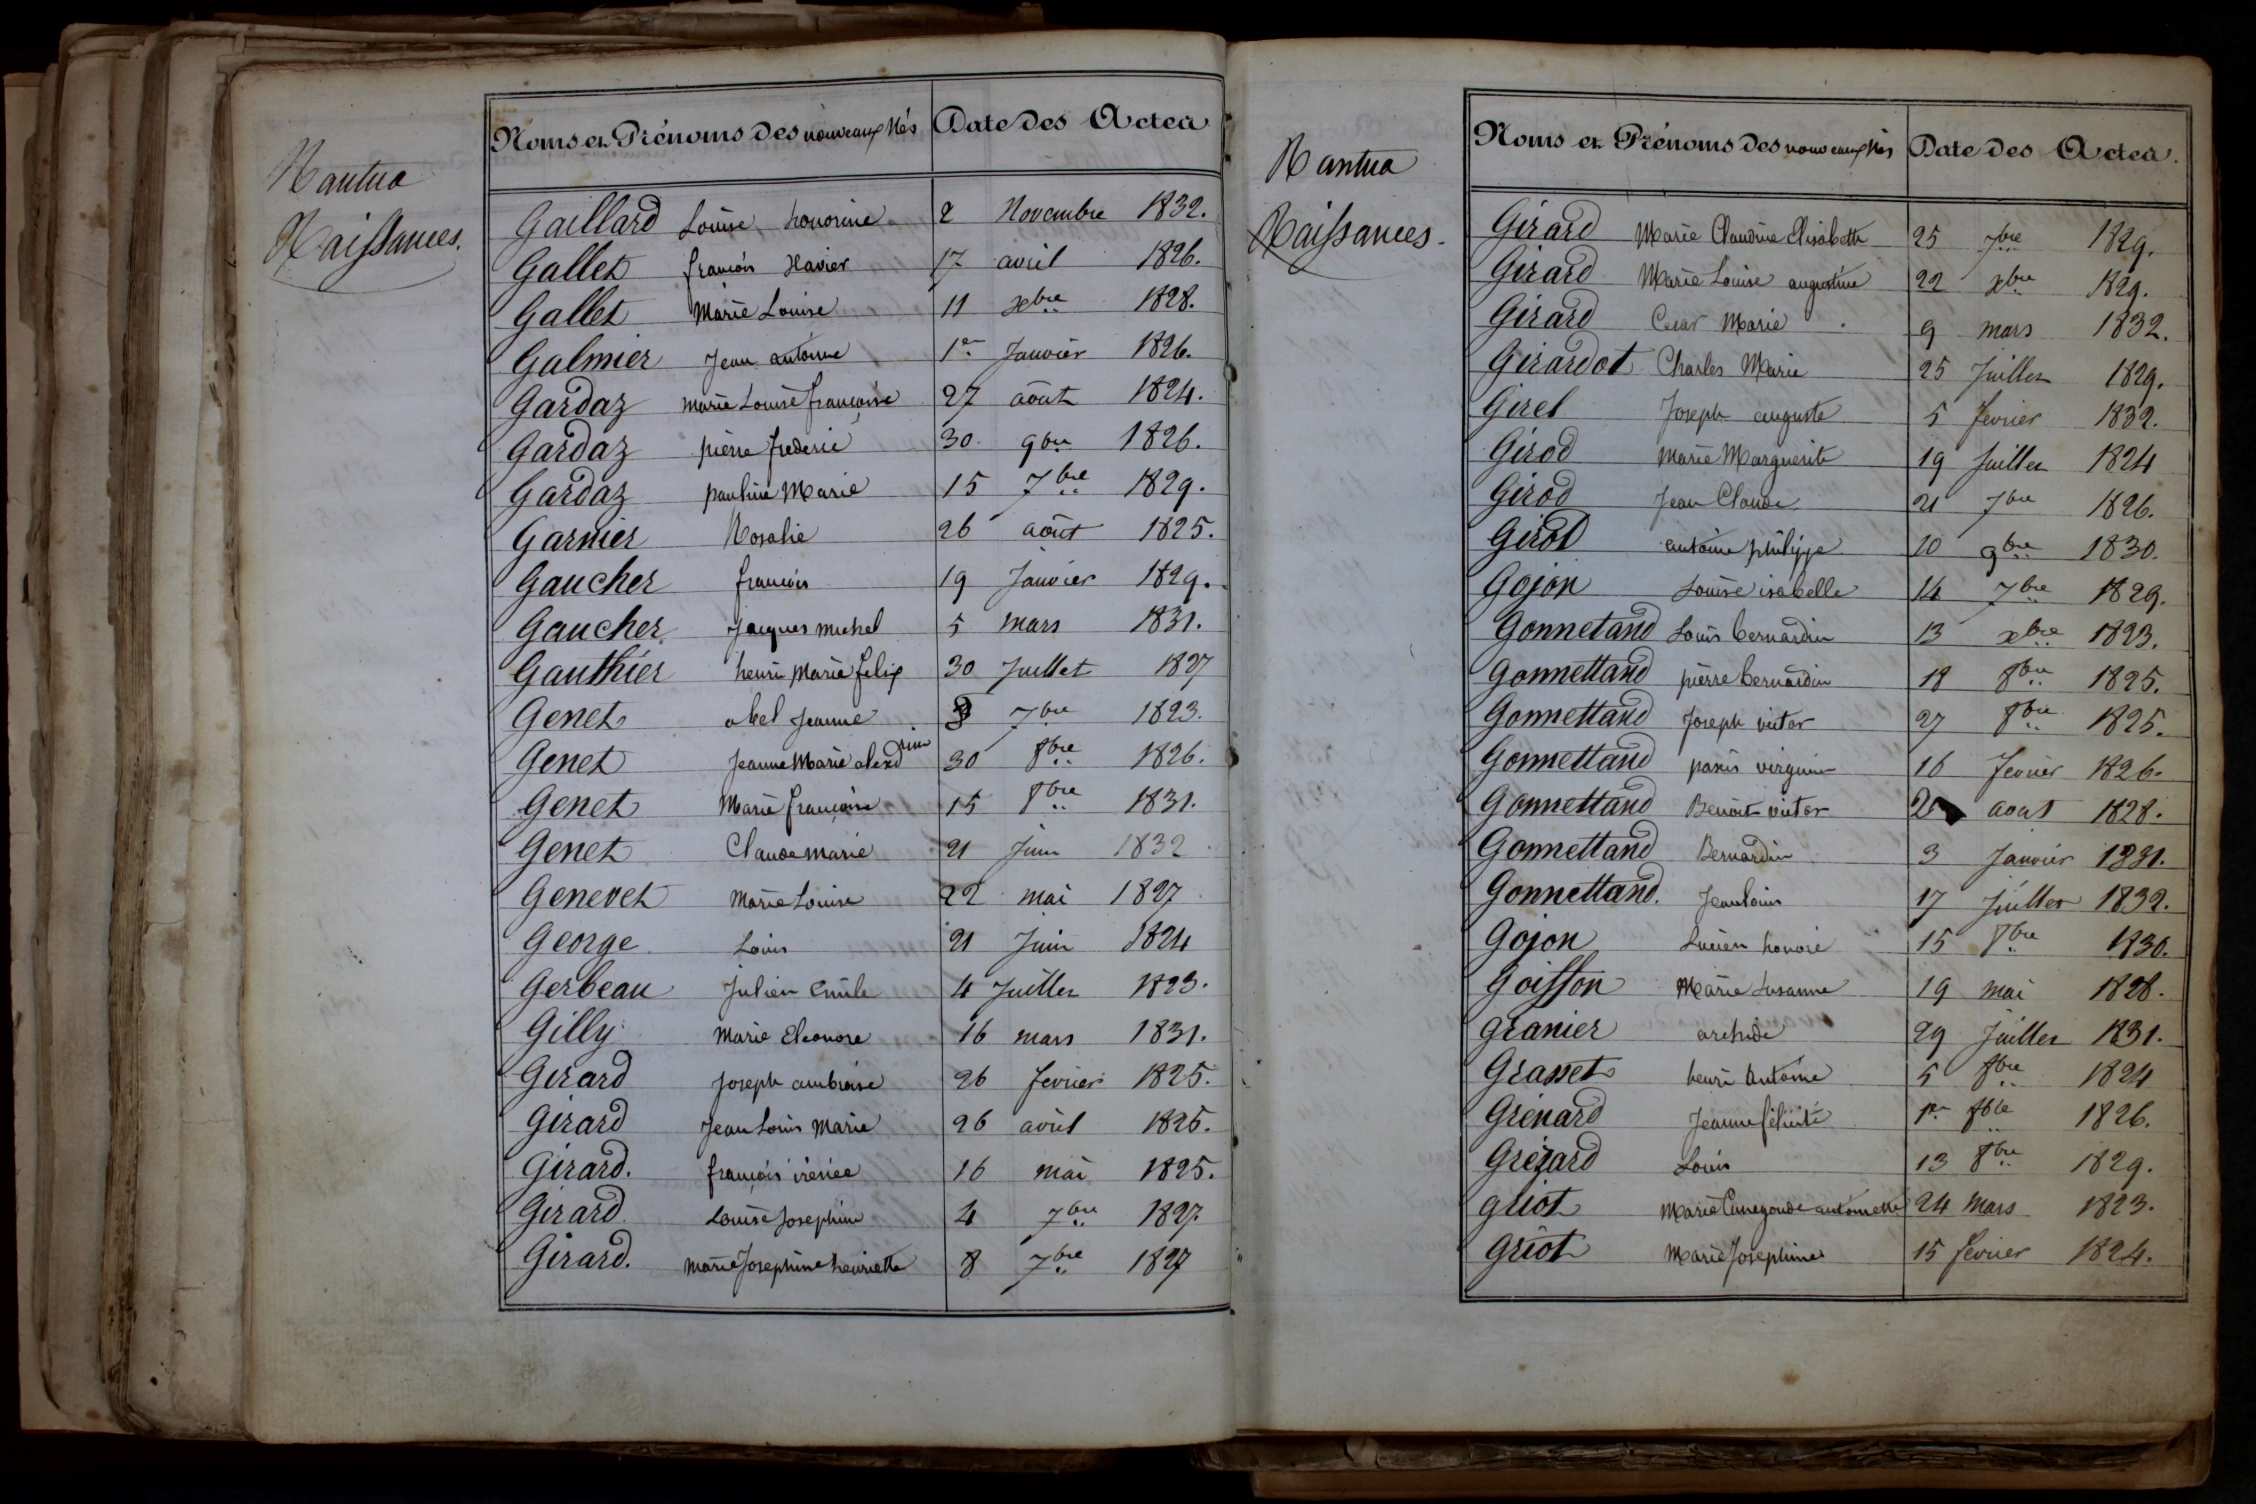 Nantua
Naissances.
Noms et Prénoms des nouveaux Nés Date des Actes
Gaillard Louise honorine 2 Novembre 1832.
Gallet françois Xavier 17 avril 1826.
Gallet Marie Louise 11 xbre 1828.
Galmier Jean antoine 1er Janvier 1826.
Gardaz marie Louise françoise 27 août 1824.
Gardaz pierre frederic 30 9bre 1826.
Gardaz pauline Marie 15 7bre 1829.
Garnier Rosalie 26 août 1825.
Gaucher françois 19 Janvier 1829.
Gaucher Jacques michel 5 mars 1831.
Gauthier henri Marie felix 30 Juillet 1827
Genet abel Jeanne 7bre 1823.
Genet Jeanne Marie alexdrine 30 8bre 1826.
Genet Marie françoise 15 8bre 1831.
Genet Claude marie 21 Juin 1832
Genevet Marie Louise 22 mai 1827
George Louis 21 Juin 1824
Gerbeau Julien Emile 4 Juillet 1823.
Gilly Marie Eleonore 16 mars 1831.
Girard Joseph ambroise 26 fevrier 1825.
Girard Jean Louis Marie 26 avril 1825.
Girard. françois irénée 16 mai 1825.
Girard Louise Josephine 4 7bre 1827.
Girard. marie Josephine henriette 8 7bre 1827
Nantua
Naissances.
Noms et Prénoms des nouveaux Nés Date des Actes.
Girard Marie Claudine Elisabeth 25 7bre 1829.
Girard Marie Louise augustine 22 xbre 1829.
Girard Cesar Marie 9 mars 1832.
Girardot Charles Marie 25 Juillet 1829.
Girel Joseph auguste 5 fevrier 1832.
Girod Marie Marguerite 19 Juillet 1824
Girod Jean Claude 21 7bre 1826.
Girod antoine philippe 10 9bre 1830.
Gojon Louise isabelle 14 7bre 1829.
Gonnetand Louis bernardin 13 xbre 1823.
Gonnettand pierre bernardin 18 8bre 1825.
Gonnettand Joseph victor 27 8bre 1825.
Gonnettand virginie 16 fevrier 1826.
Gonnettand Benoit victor aout 1828.
Gonnettand Bernardin 3 Janvier 1831.
Gonnettand. Jean louis 17 juillet 1832.
Gojon Lucien honoré 15 8bre 1830.
Goisson Marie Susanne 19 mai 1828.
Granier 29 Juillet 1831.
Grasset henri Antoine 5 8bre 1824
Grenard Jeanne félicité 1er 8bre 1826.
Grézard Louis 13 8bre 1829.
Griot Marie Cunegonde antoinette 24 Mars 1823.
Griot Marie Josephine 15 fevrier 1824.